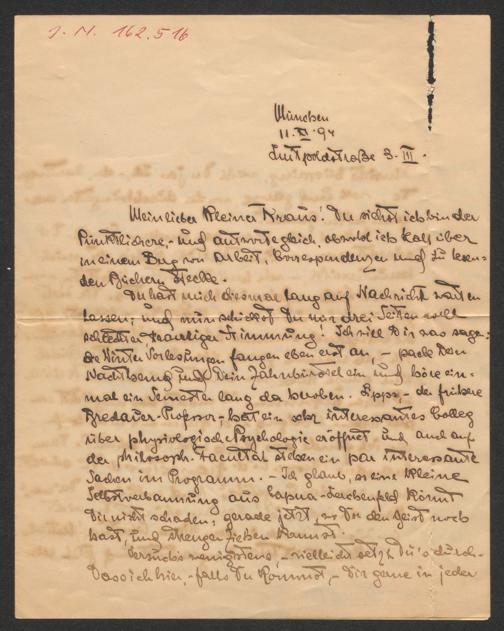 J. N. 162.516
München
11. XI. 94
Luitpoldstraße 3. III.
Mein lieber kleiner Kraus! Du siehst ich bin der
Pünktlichere, und antworte gleich, obwohl ich halb über
in einem Berg von Arbeit, Correspondenzen und zu lesen-
den Büchern stecke.
Du hast mich diesmal lang auf Nachricht warten
lassen; und nun schickst Du nur drei Seiten voll
schlechter Stimmung! Ich will Dir was sagen:
die Winter Vorlesungen fangen eben erst an, – pack Dein
Nachthemd und Dein Zahnbürstel ein und höre ein-
mal ein Semester lang da heroben. Lipps, – der frühere
Bredauer-Professor – hat ein sehr interessantes Colleg
über physiologische Psychologie eröffnet und auch auf
der philosoph. Facultät stehen ein par interessante
Sachen im Programm. – Ich glaub, so eine kleine
Selbstverbannung aus Capua-Lerchenfeld könnt
Dir nicht schaden, gerade jetzt, wo Du den Geist noch
hast, und Strenger kannst.
Versuch's wenigstens – vielleicht setzst Du's durch.
Dass ich hier, – falls Du kommst, – Dir gerne in jeder